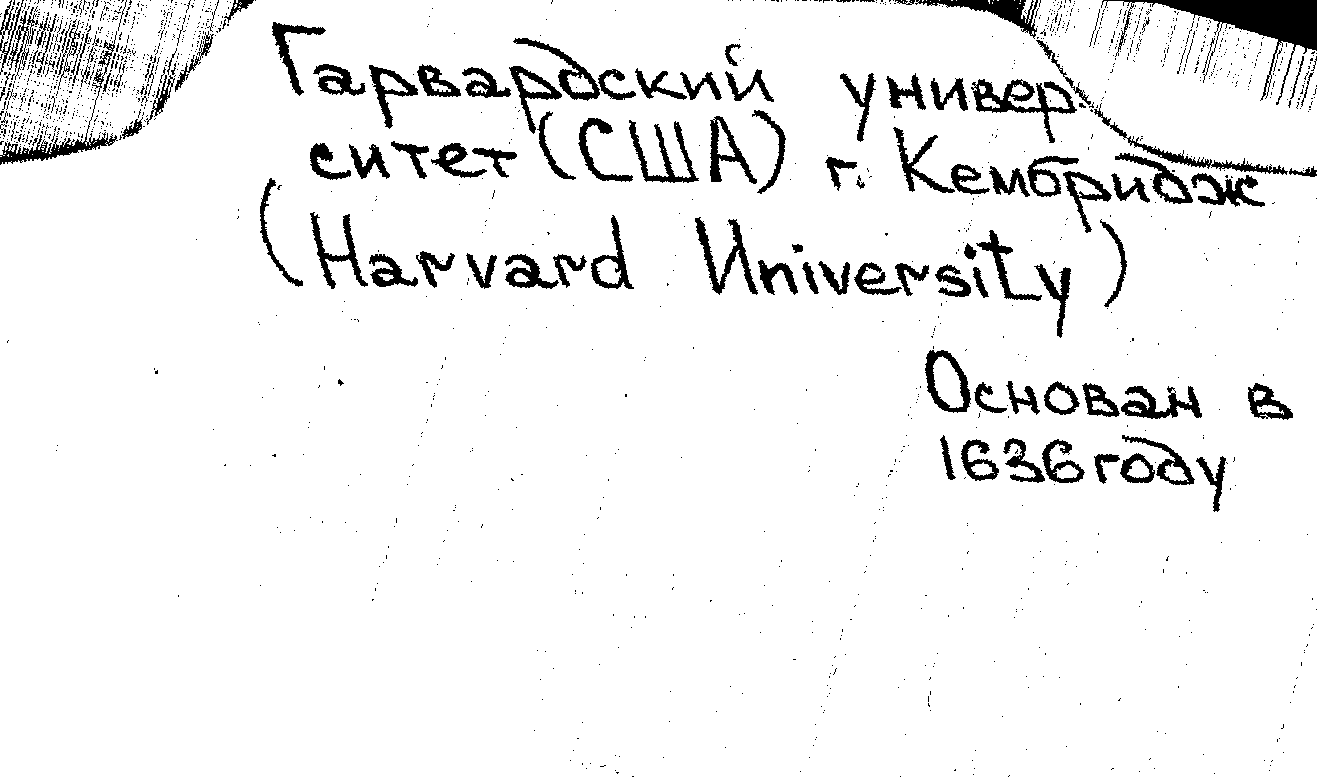 Гарвардский универ-
ситет (США) г. Кембридж
(Harvard University)
Основан в
1636 году